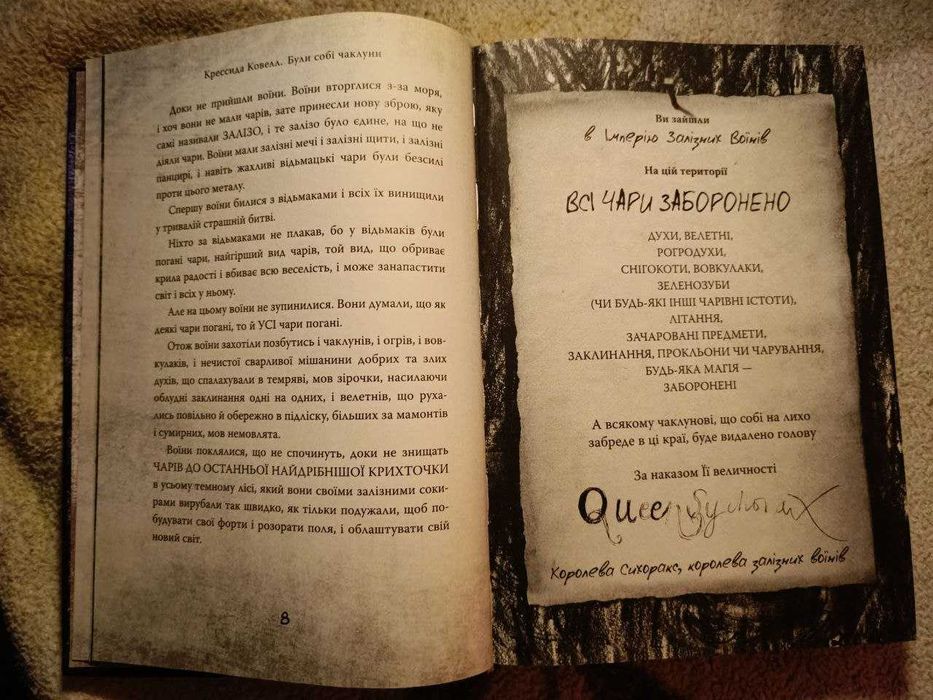 Крессида Ковелл. Були собі чаклуни
Доки не прийшли воїни. Воїни вторглися з-за моря,
і хоч вони не мали чарів, зате принесли нову зброю, яку
самі називали ЗАЛІЗО, і те залізо було єдине, на що не
діяли чари. Воїни мали залізні мечі і залізні щити, і залізні
панцирі, і навіть жахливі відьмацькі чари були безсилі
проти цього металу.
Спершу воїни билися з відьмаками і всіх їх винищили
у тривалій страшній битві.
Ніхто за відьмаками не плакав, бо у відьмаків були
погані чари, найгірший вид чарів, той вид, що обриває
крила радості і вбиває всю веселість, і може занапастити
світ і всіх у ньому.
Але на цьому воїни не зупинилися. Вони думали, що як
деякі чари погані, то й УСІ чари погані.
Отож воїни захотіли позбутись і чаклунів, і огрів, і вов-
кулаків, і нечистої сварливої мішанини добрих та злих
духів, що спалахували в темряві, мов зірочки, насилаючи
облудні заклинання одні на одних, і велетнів, що руха-
лись повільно й обережно в підліску, більших за мамонтів
і сумирних, мов немовлята.
Воїни поклялися, що не спочинуть, доки не знищать
ЧАРІВ ДО ОСТАННЬОЇ НАЙДРІБНІШОЇ КРИХТОЧКИ
в усьому темному лісі, який вони своїми залізними соки-
рами вирубали так швидко, як тільки подужали, щоб по-
будувати свої форти і розорати поля, і облаштувати свій
новий світ.
8
Ви зайшли
в Імперію Залізних Воїнів
На цій території
ВСІ ЧАРИ ЗАБОРОНЕНО
ДУХИ, ВЕЛЕТНІ,
РОГРОДУХИ,
СНІГОКОТИ, ВОВКУЛАКИ,
ЗЕЛЕНОЗУБИ
(ЧИ БУДЬ-ЯКІ ІНШІ ЧАРІВНІ ІСТОТИ),
ЛІТАННЯ,
ЗАЧАРОВАНІ ПРЕДМЕТИ,
ЗАКЛИНАННЯ, ПРОКЛЬОНИ ЧИ ЧАРУВАННЯ,
БУДЬ-ЯКА МАГІЯ —
ЗАБОРОНЕНІ
А всякому чаклунові, що собі на лихо
забреде в ці краї, буде видалено голову
За наказом Її величності
Queen
Королева Сихоракс, королева залізних воїнів